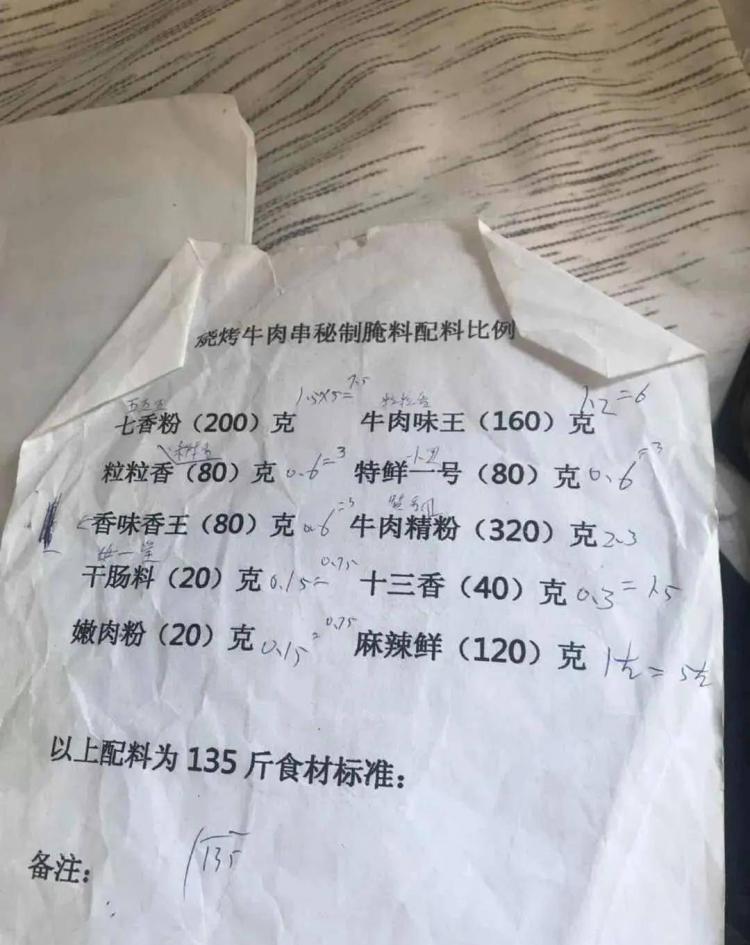 烧烤牛肉串秘制腌料配料比例
1.5×5=7.5 粒粒香 1.2=6
七香粉（200）克 牛肉味王（160）克
粒粒香（80）克 0.6=3 特鲜一号（80）克 0.6=3
香味香王（80）克 0.6=3 牛肉精粉（320）克 2.3
干肠料（20）克 0.15=0.75 十三香（40）克 0.3=1.5
嫩肉粉（20）克 0.15=0.75 麻辣鲜（120）克
以上配料为 135 斤食材标准：
备注： 135